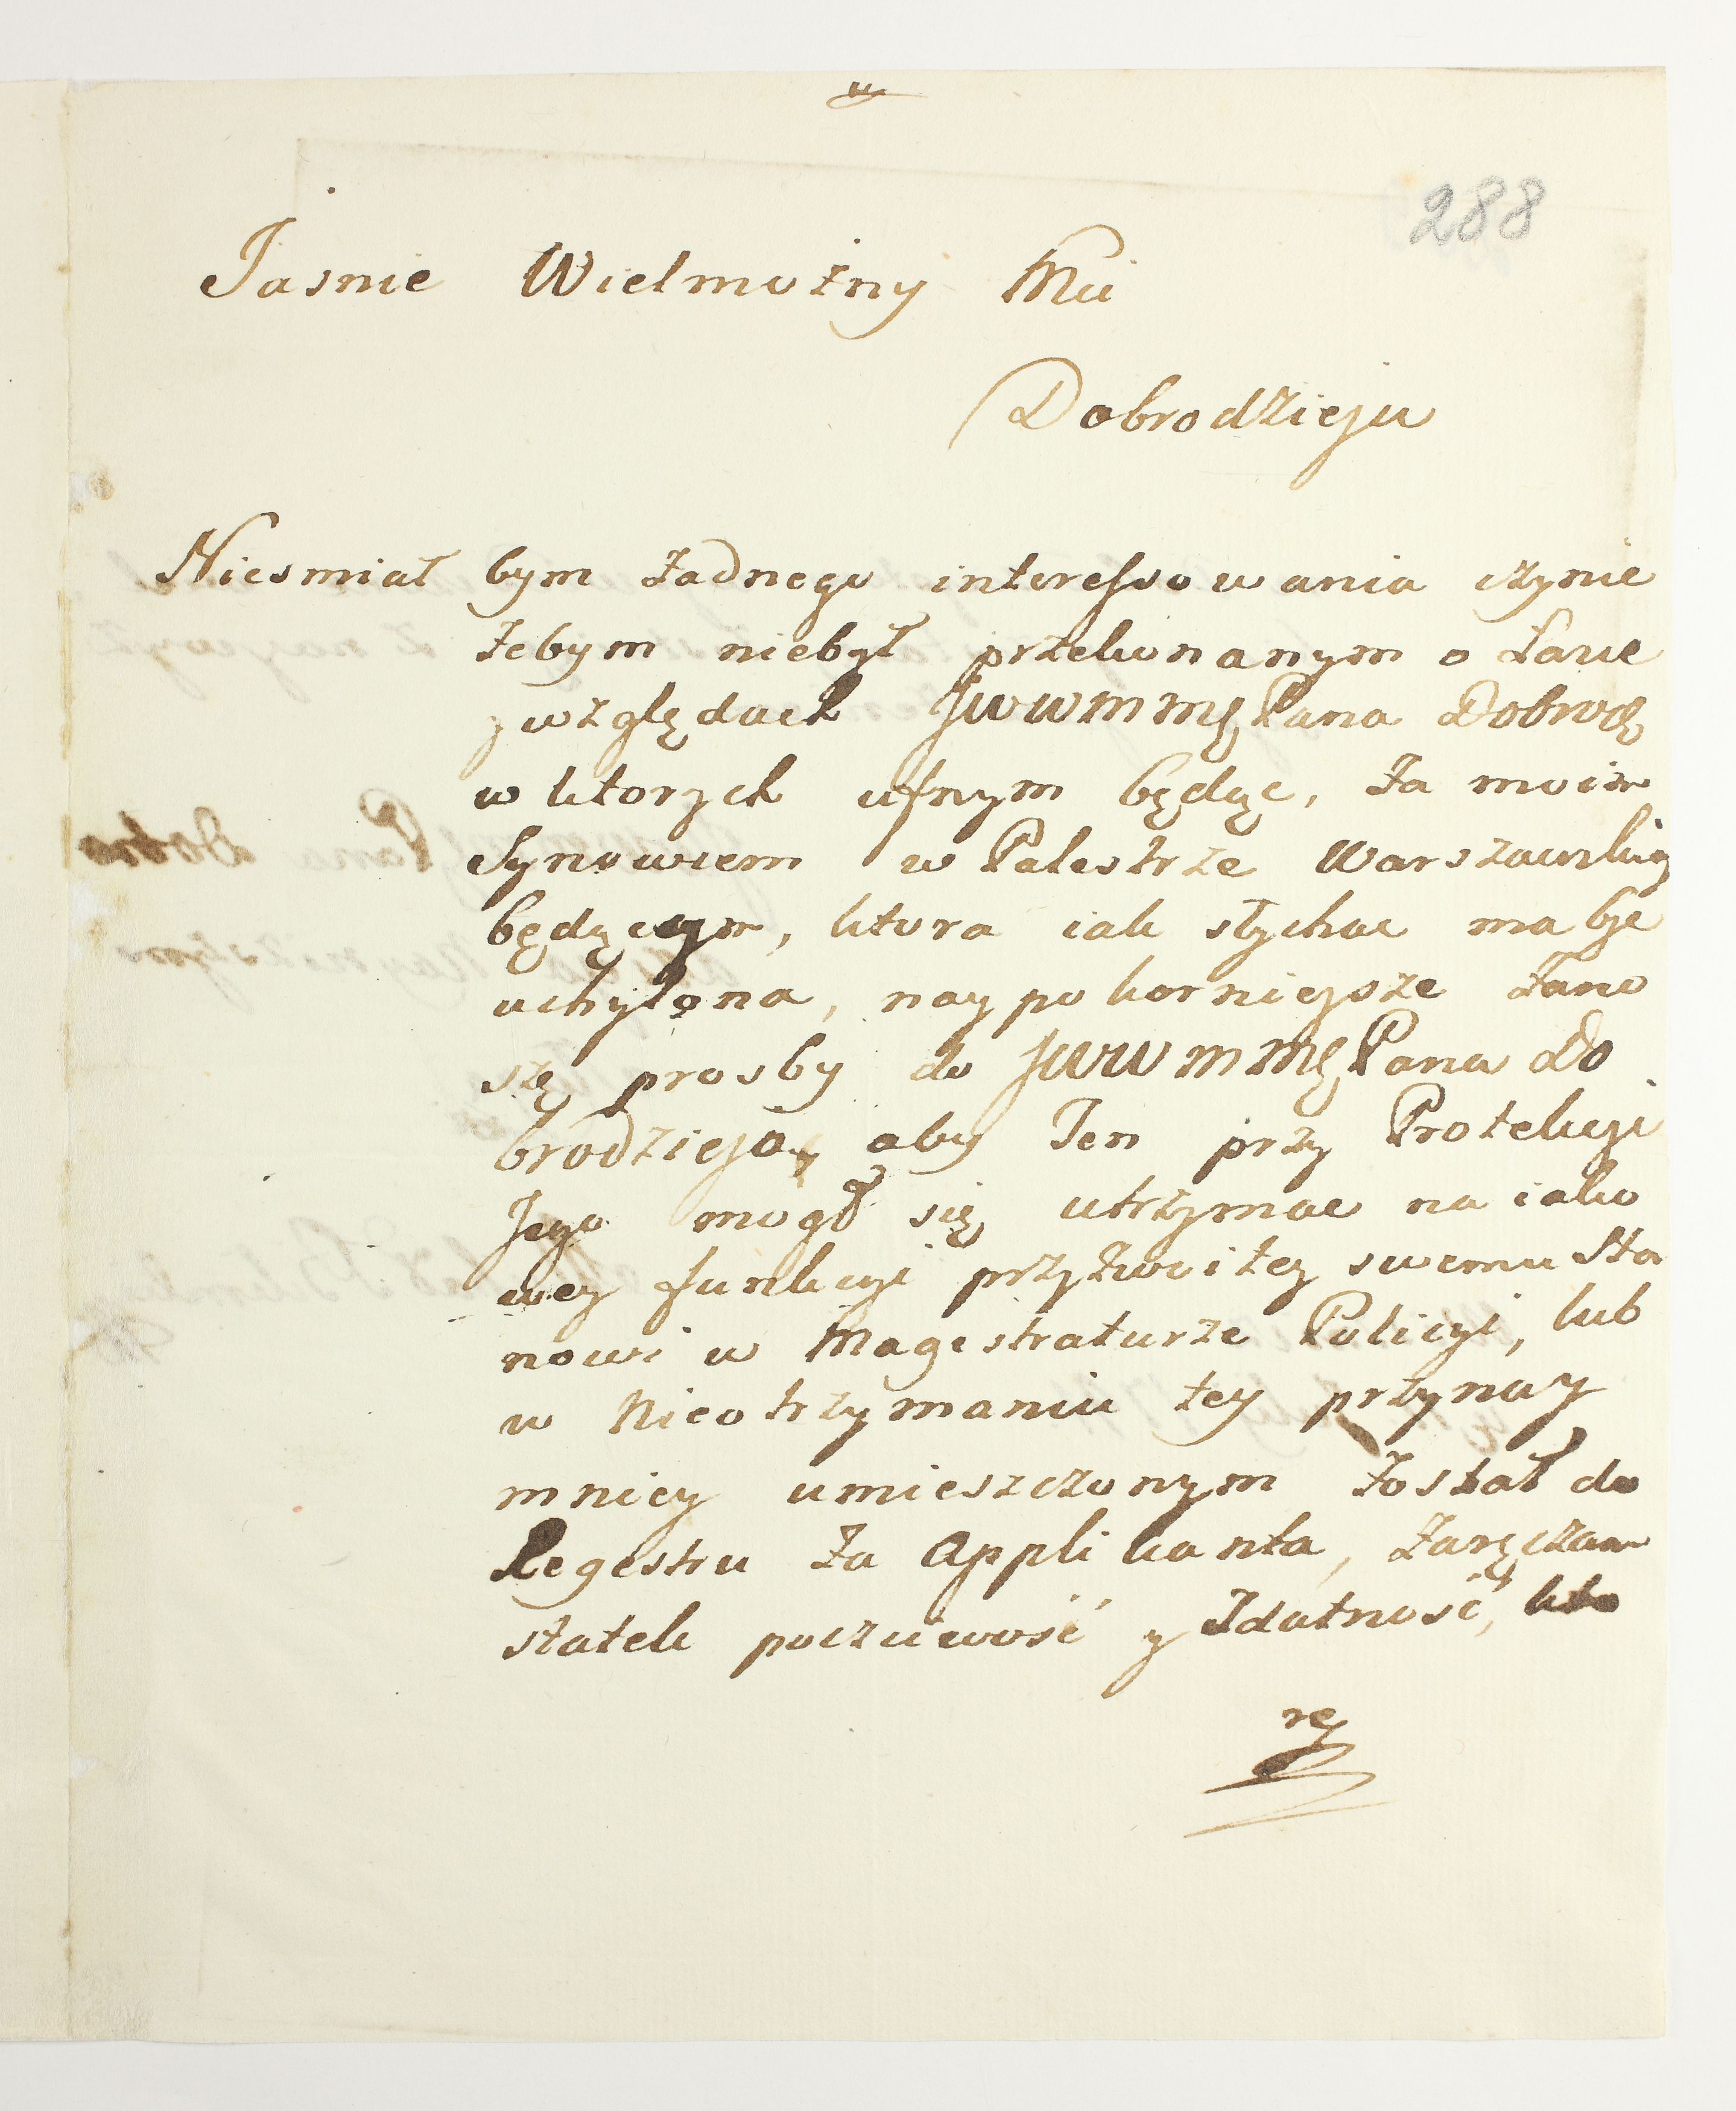 288
Jasnie Wielmożny Mci
Dobrodzieju
Niesmiał bym żadnego interessowania czynic
żebym niebył przekonanym o Łasce
y względach JWWMMę Pana Dobrodę
w ktorych ufnym będąc, za moim
Synowcem w Palestrze Warszawskiey
będącym, ktora iak słychac ma byc
uchylona, naypokornieysze zano
szę prosby do JWWMMę Pana Do
brodzieja, aby Ten przy Protekcyi
Jego mogł się utrzymac na iako
wey funkcyi przyzwoitey swemu Sta
nowi w Magestraturze Policyi, lub
w Nieotrzymaniu tey przynay
mniey umieszczonym został do
Regestru za Applikanta, zaręczam
statek poczciwość y Zdatność, kto
rey